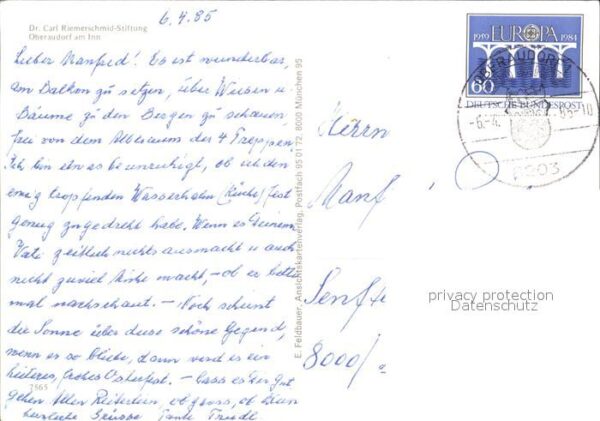 6.4.85
Dr. Carl Riemerschmid-Stiftung
Oberaudorf am Inn
Lieber Manfred! Es ist wunderbar,
am Balkon zu sitzen, über Wiesen u.
Bäume zu den Bergen zu schauen,
frei von dem Albtraum der 4 Treppen.
Ich bin etwas beunruhigt, ob ich den
ewig tropfenden Wasserhahn (Küche) fest
genug zugedreht habe. Wenn es Deinem
Vati zeitlich nichts ausmacht u. auch
nicht zuviel Mühe macht, – ob er bitte
mal nachschaut. – Noch scheint
die Sonne über diese schöne Gegend,
wenn es so bliebe, dann werd es ein
heiteres, frohes Osterfest. – Lass es Dir gut
gehen. Allen Reiterlein, ob gross, ob klein
herzliche Grüsse Tante Friedl
7565
E. Feldbauer, Ansichtskartenverlag, Postfach 95 01 72, 8000 München 95
1959 EUROPA 1984
60
DEUTSCHE BUNDESPOST
OBERAUDORF
-6.-4. 85-10
8203
Herrn
Manf
Senft
8000/
privacy protection
Datenschutz